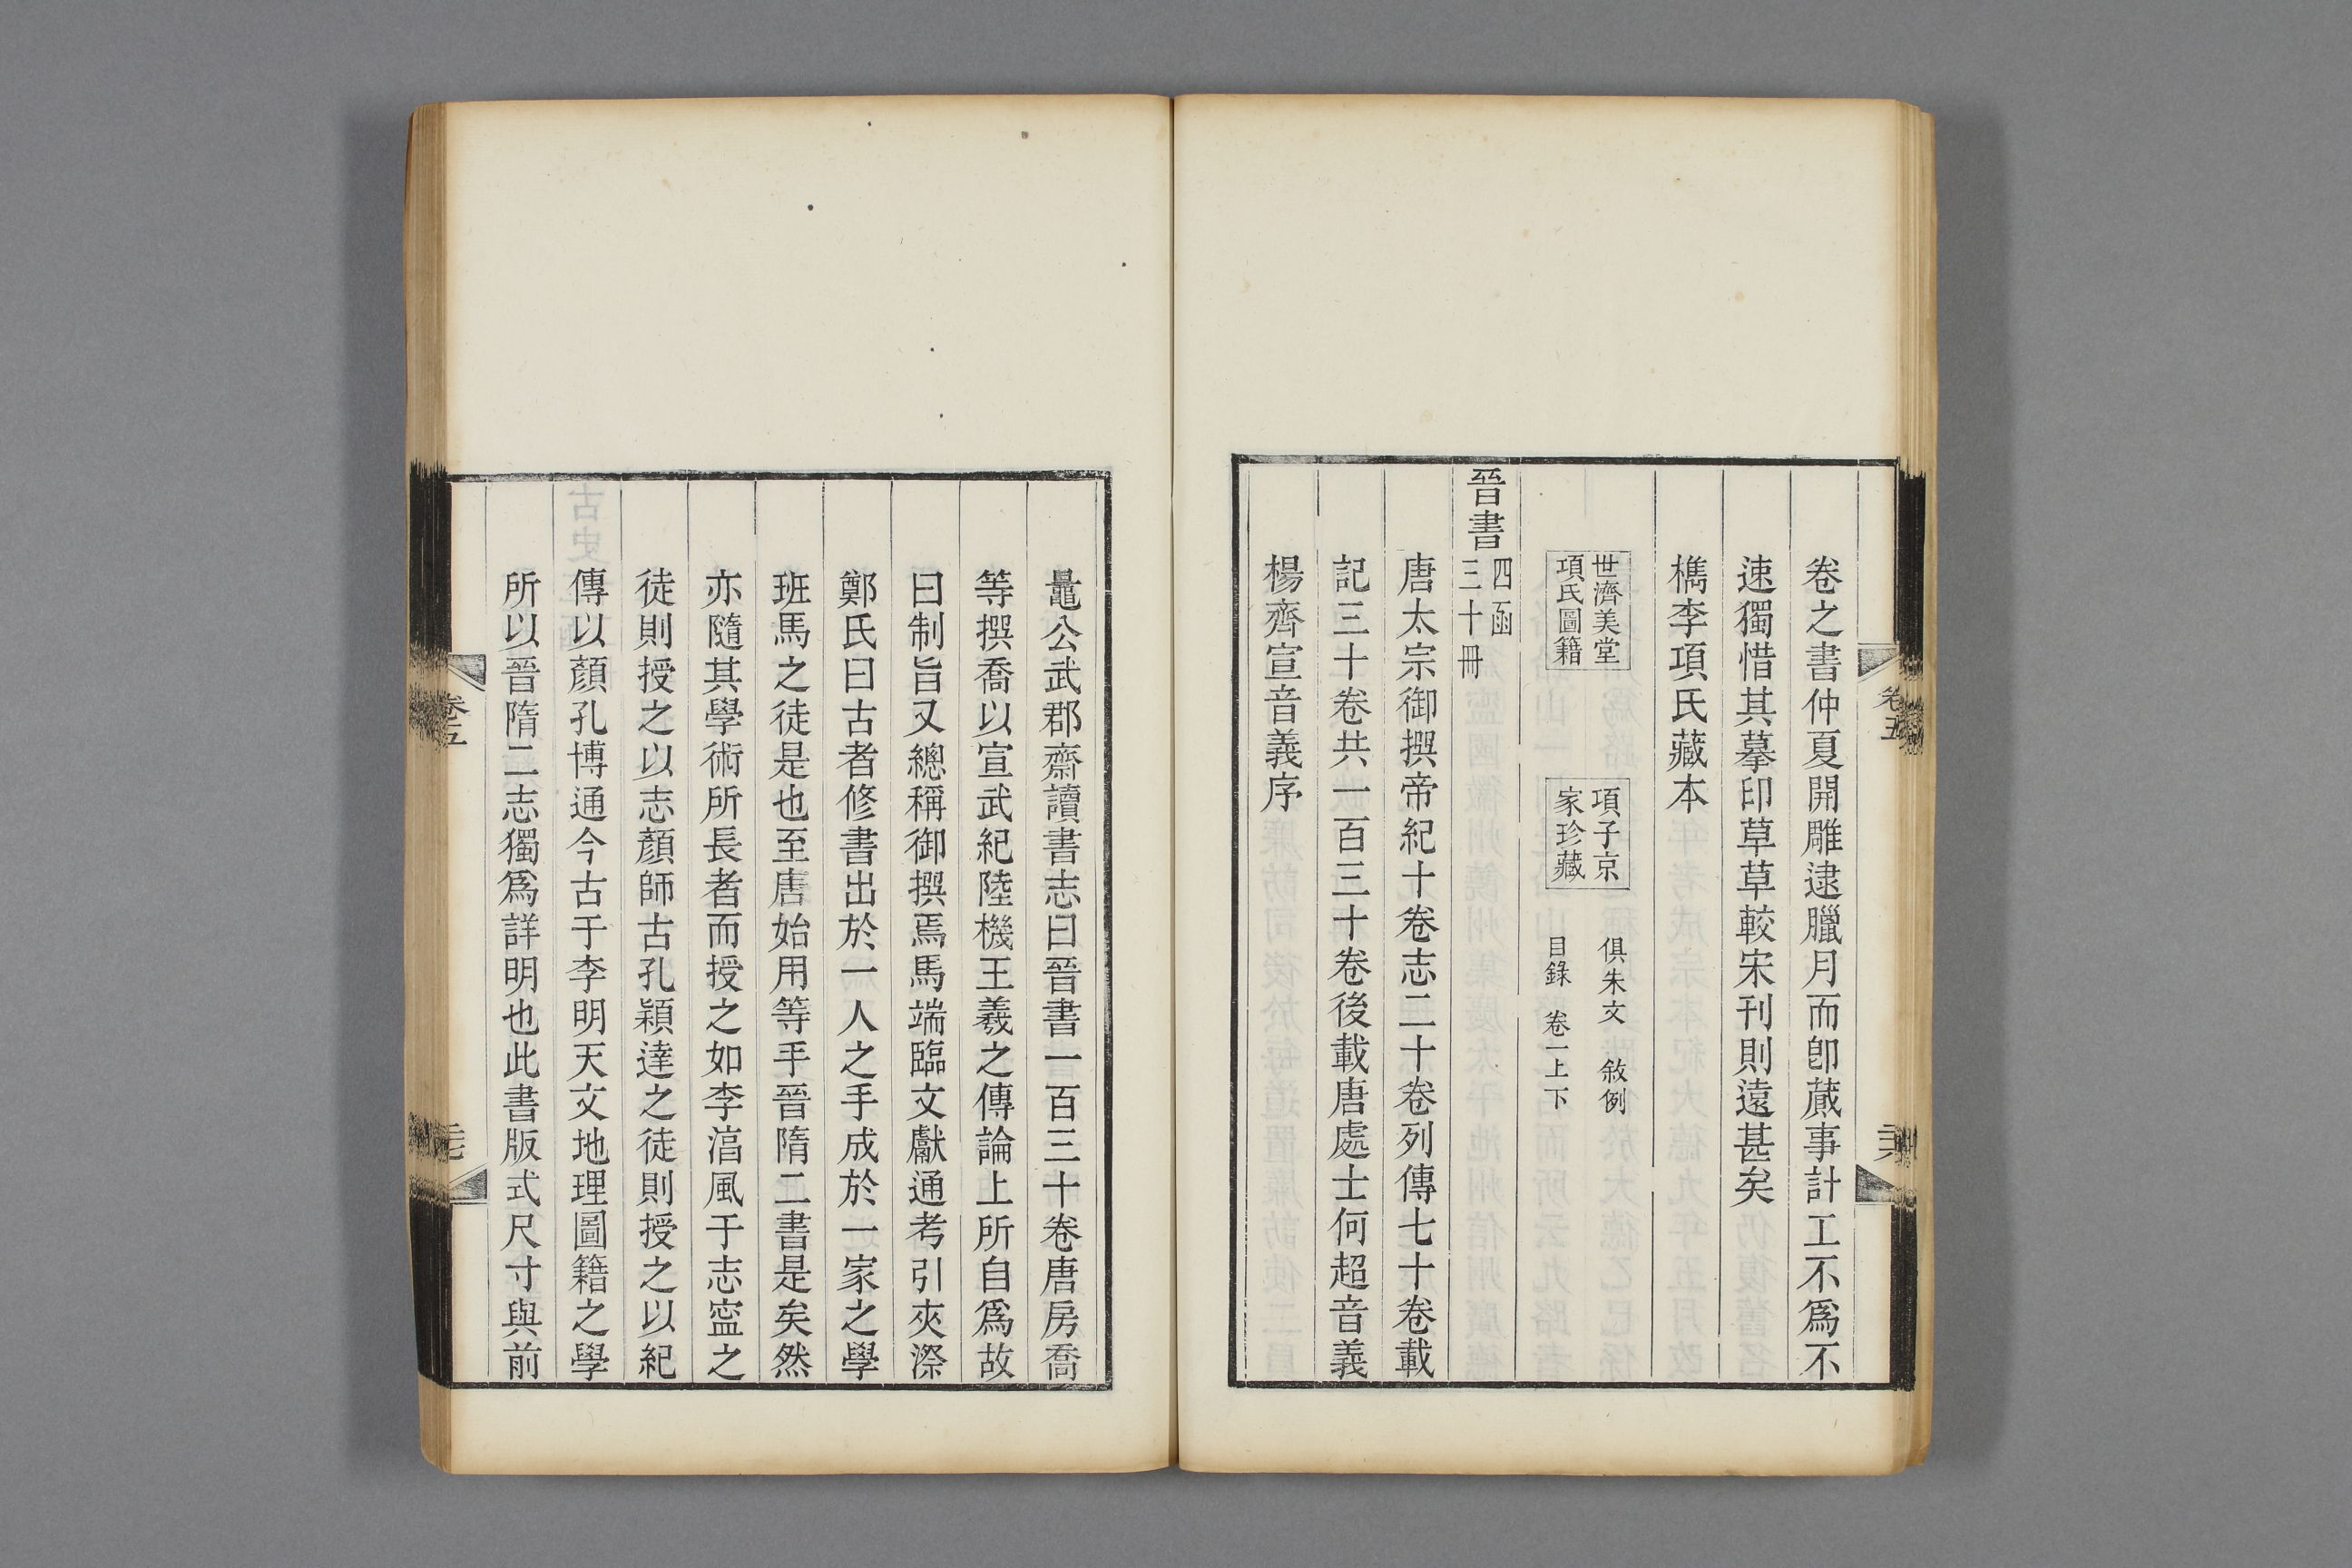 卷之書仲夏開雕逮臘月而卽蕆事計工不爲不
速獨惜其摹印草草較宋刊則遠甚矣
檇李項氏藏本
世濟美堂
項氏圖籍
項子京
家珍藏
俱朱文 敘例
目錄 卷一上下
晉書
四函
三十冊
唐太宗御撰帝紀十卷志二十卷列傳七十卷載
記三十卷共一百三十卷後載唐處士何超音義
楊齊宣音義序
卷五
鼂公武郡齋讀書志曰晉書一百三十卷唐房喬
等撰喬以宣武紀陸機王羲之傳論上所自爲故
曰制旨又總稱御撰焉馬端臨文獻通考引夾漈
鄭氏曰古者修書出於一人之手成於一家之學
班馬之徒是也至唐始用等手晉隋二書是矣然
亦隨其學術所長者而授之如李淳風于志寍之
徒則授之以志顏師古孔穎達之徒則授之以紀
傳以顏孔博通今古于李明天文地理圖籍之學
所以晉隋二志獨爲詳明也此書版式尺寸與前
卷五